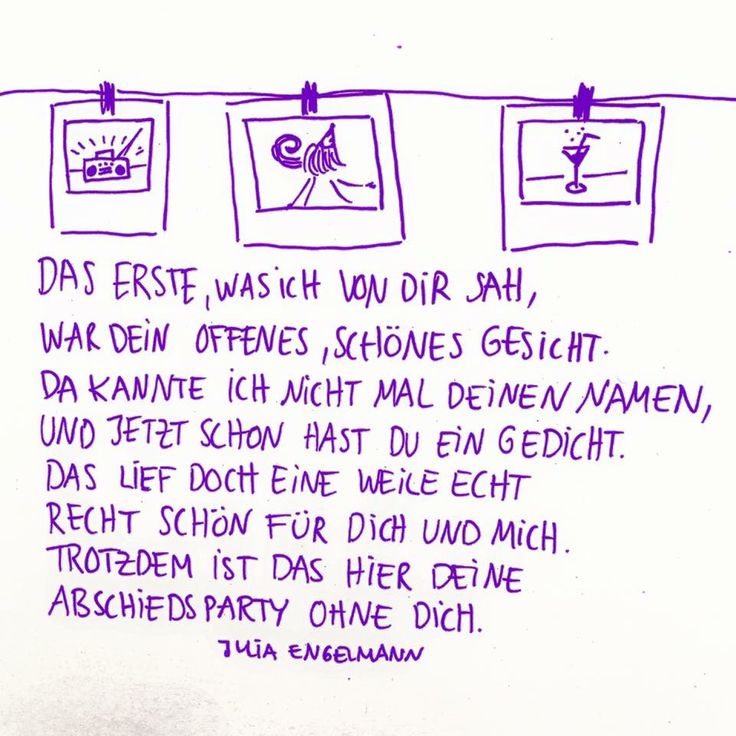 DAS ERSTE, WAS ICH VON DIR SAH,
WAR DEIN OFFENES, SCHÖNES GESICHT.
DA KANNTE ICH NICHT MAL DEINEN NAMEN,
UND JETZT SCHON HAST DU EIN GEDICHT.
DAS LIEF DOCH EINE WEILE ECHT
RECHT SCHÖN FÜR DICH UND MICH.
TROTZDEM IST DAS HIER DEINE
ABSCHIEDSPARTY OHNE DICH.
JULIA ENGELMANN